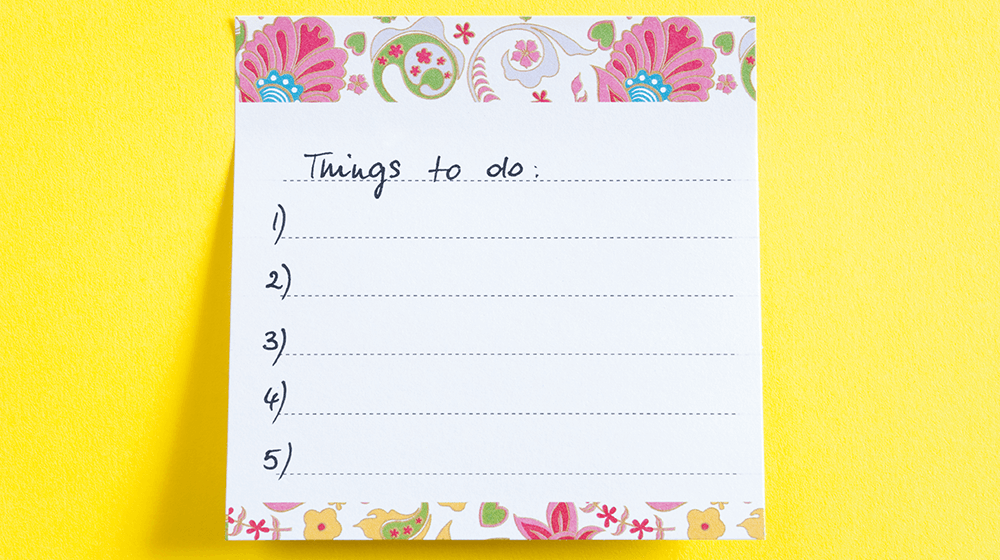 Things to do:
1)
2)
3)
4)
5)